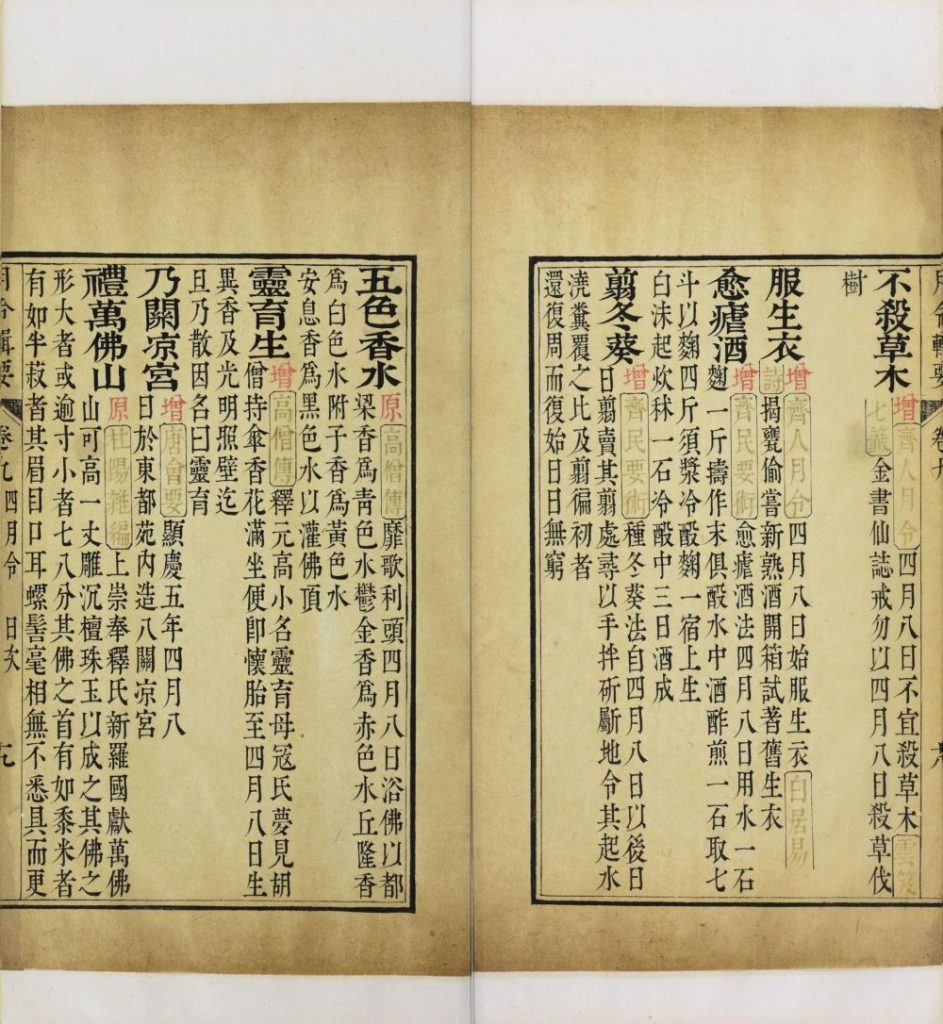 月令輯要 卷九
不殺草木
增齊人月令四月八日不宜殺草木雲笈
七籤金書仙誌戒勿以四月八日殺草伐
樹
服生衣
增齊人月令四月八日始服生衣白居易
詩揭甕偷嘗新熟酒開箱試著舊生衣
愈瘧酒
增齊民要術愈瘧酒法四月八日用水一石
麴一斤擣作末俱酘水中酒酢煎一石取七
斗以麴四斤須漿冷酘麴一宿上生
白沫起炊秫一石冷酘中三日酒成
翦冬葵
增齊民要術種冬葵法自四月八日以後日
日翦賣其翦處尋以手拌斫斸地令其起水
澆糞覆之比及翦徧初者
還復周而復始日日無窮
五色香水
原高僧傳靡歌利頭四月八日浴佛以都
梁香爲靑色水鬱金香爲赤色水丘隆香
爲白色水附子香爲黃色水
安息香爲黑色水以灌佛頂
靈育生
增高僧傳釋元高小名靈育母冦氏夢見胡
僧持傘香花滿坐便卽懷胎至四月八日生
異香及光明照壁迄
旦乃散因名曰靈育
乃關凉宮
增唐會要顯慶五年四月八
日於東都苑内造八關凉宮
禮萬佛山
原杜陽雜編上崇奉釋氏新羅國獻萬佛
山可高一丈雕沉檀珠玉以成之其佛之
形大者或逾寸小者七八分其佛之首有如黍米者
有如半菽者其眉目口耳螺髻毫相無不悉具而更
月令輯要 卷九 四月令 日次